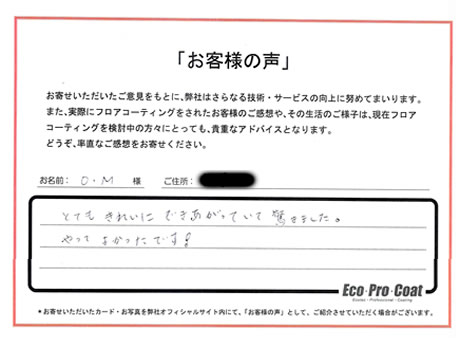 「お客様の声」
お寄せいただいたご意見をもとに、弊社はさらなる技術・サービスの向上に努めてまいります。
また、実際にフロアコーティングをされたお客様のご感想や、その生活のご様子は、現在フロア
コーティングを検討中の方々にとっても、貴重なアドバイスとなります。
どうぞ、率直なご感想をお寄せください。
お名前： O・M 様 ご住所：
とても きれいに できあがっていて 驚きました。
やって よかったです!
Eco・Pro・Coat
Ecolou・Professional・Coating
*お寄せいただいたカード・お写真を弊社オフィシャルサイト内にて、「お客様の声」として、ご紹介させていただく場合がございます。